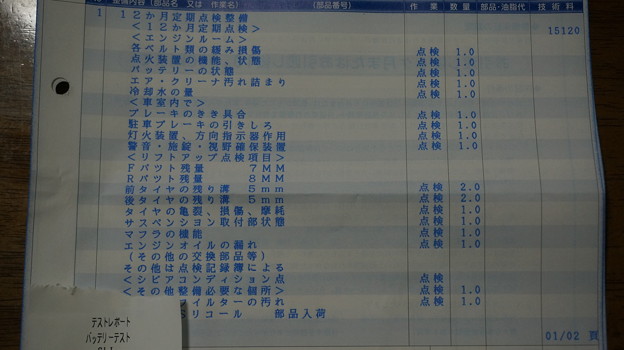 整備内容(部品名 又は 作業名) (部品番号) 作業 数量 部品・油脂代 技術料
1 12か月定期点検整備 15120
<12か月定期点検>
<エンジンルーム>
各ベルト類の緩み損傷 点検 1.0
点火装置の機能、状態 点検 1.0
バッテリーの状態 点検 1.0
エア・クリーナ汚れ詰まり 点検 1.0
冷却水の量 点検 1.0
<車室内で>
ブレーキのきき具合 点検 1.0
駐車ブレーキの引きしろ 点検 1.0
灯火装置、方向指示器作用 点検 1.0
警音・施錠・視野確保装置 点検 1.0
<リフトアップ点検項目>
Fパット残量 7MM
Rパット残量 8MM
前タイヤの残り溝 5mm 点検 2.0
後タイヤの残り溝 5mm 点検 2.0
タイヤの亀裂、損傷、摩耗 点検 1.0
サスペンション取付部状態 点検 1.0
マフラの機能 点検 1.0
エンジンオイルの漏れ 点検 1.0
(その他の交換部品等)
その他は点検記録簿による
<シビアコンディション点 点検
<その他整備必要な個所> 点検 1.0
ィルターの汚れ 点検 1.0
リコール 部品入荷
01/02 頁
テストレポート
バッテリーテスト